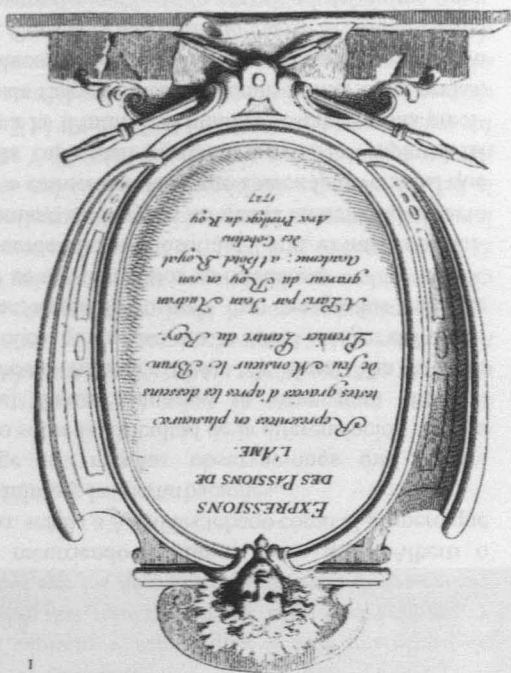 EXPRESSIONS
DES PASSIONS DE
L'AME.
Representées en plusieurs
testes gravées d'apres les desseins
de feu Monsieur le Brun
Premier Peintre du Roy.
A Paris par Jean Audran
graveur du Roy en son
Academie; a l'Hotel Royal
des Gobelins
Avec Privilege du Roy
1727
I